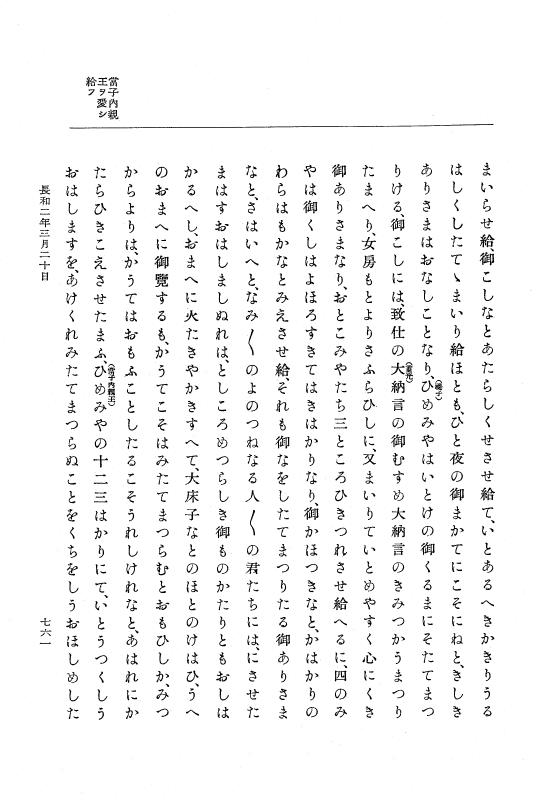 當子內親
王ヲ愛シ
給フ
まいらせ給、御こしなとあたらしくせさせ給て、いとあるへきかきりうる
はしくしたてゝまいり給ほとも、ひと夜の御まかてにこそにねと、きしき
ありさまはおなしことなり、ひめみやはいとけの御くるまにそたてまつ
(禔子)
りける、御こしには、致仕の大納言の御むすめ大納言のきみつかうまつり
(重光)
たまへり、女房もとよりさふらひしに、又まいりていとめやすく心にくき
御ありさまなり、おとこみやたち三ところひきつれさせ給へるに、四のみ
やは御くしはよほろすきてはきはかりなり、御かほつきなと、かはかりの
わらはもかなとみえさせ給、それも御なをしたてまつりたる御ありさま
なと、さはいへと、なみ〳〵のよのつねなる人〳〵の君たちには、にさせた
まはすおはしましぬれは、としころめつらしき御ものかたりともおしは
かるへし、おまへに火たきやかきすへて、大床子なとのほとのけはひ、うへ
のおまへに御覽するも、かうてこそはみたてまつらむとおもひしか、みつ
からよりは、かうてはおもふことしたるこそうれしけれなと、あはれにか
たらひきこえさせたまふ、ひめみやの十二三はかりにて、いとうつくしう
(當子內親王)
おはしますを、あけくれみたてまつらぬことをくちをしうおほしめした
長和二年三月二十日
七六一